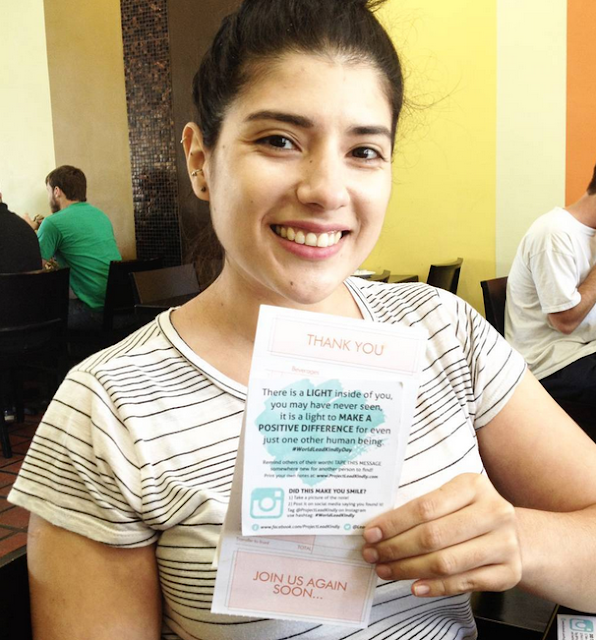 THANK YOU
Beverages
There is a LIGHT inside of you,
you may have never seen,
it is a light to MAKE A
POSITIVE DIFFERENCE for even
just one other human being.
#WorldLeadKindlyDay
Remind others of their worth! TAPE THIS MESSAGE
somewhere new for another person to find!
Print your own notes at: www.ProjectLeadKindly.com
DID THIS MAKE YOU SMILE?
1) Take a picture of the note!
2) Post it on social media saying you found it!
Tag @ProjectLeadKindly on Instagram
use hashtag: #WorldLeadKindly
www.facebook.com/ProjectLeadKindly
JOIN US AGAIN
SOON...